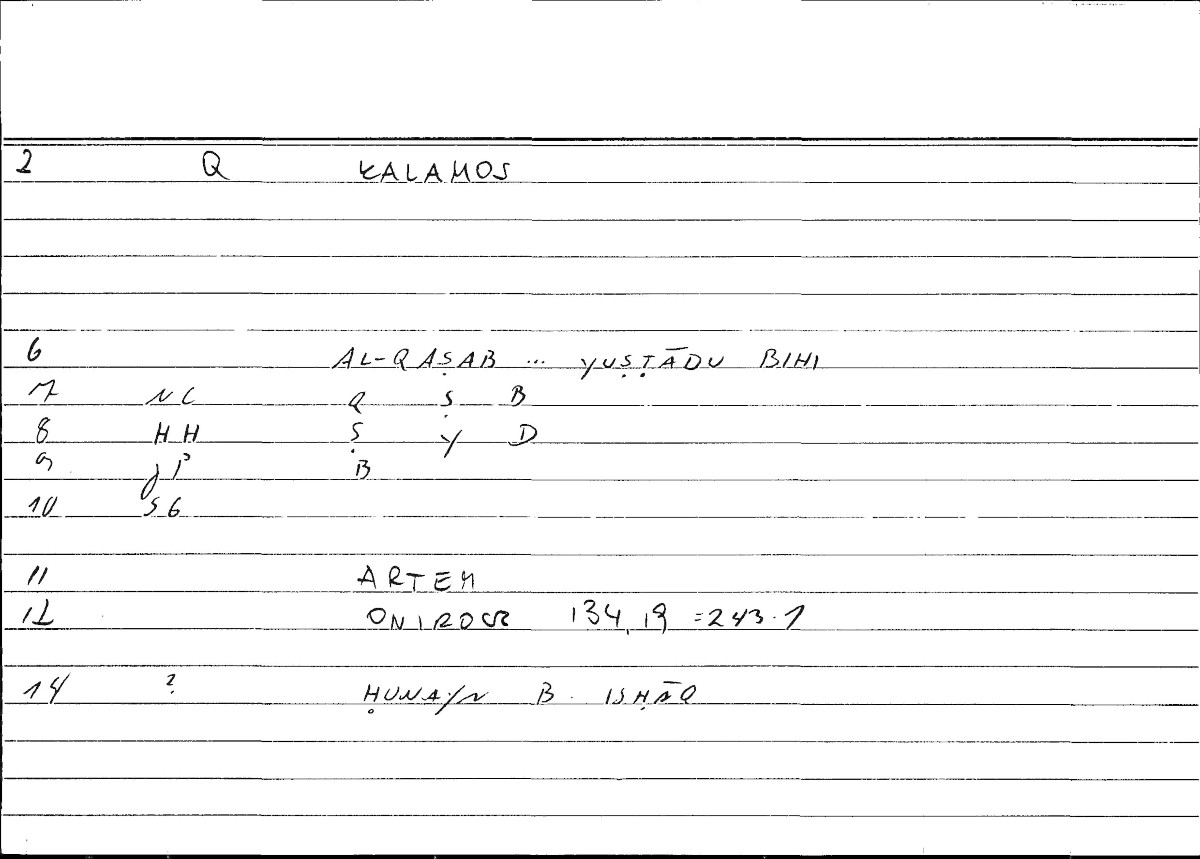 2 Q KALAMOS
6 AL-QAṢAB ... YUṢṬĀDU BIHI
7 NC Q Ṣ B
8 HH Ṣ Y D
9 JP B
10 SG
11 ARTEM
12 ONIROCR 134,19 =243.1
14 ? ḤUNAYN B. ISḤĀQ